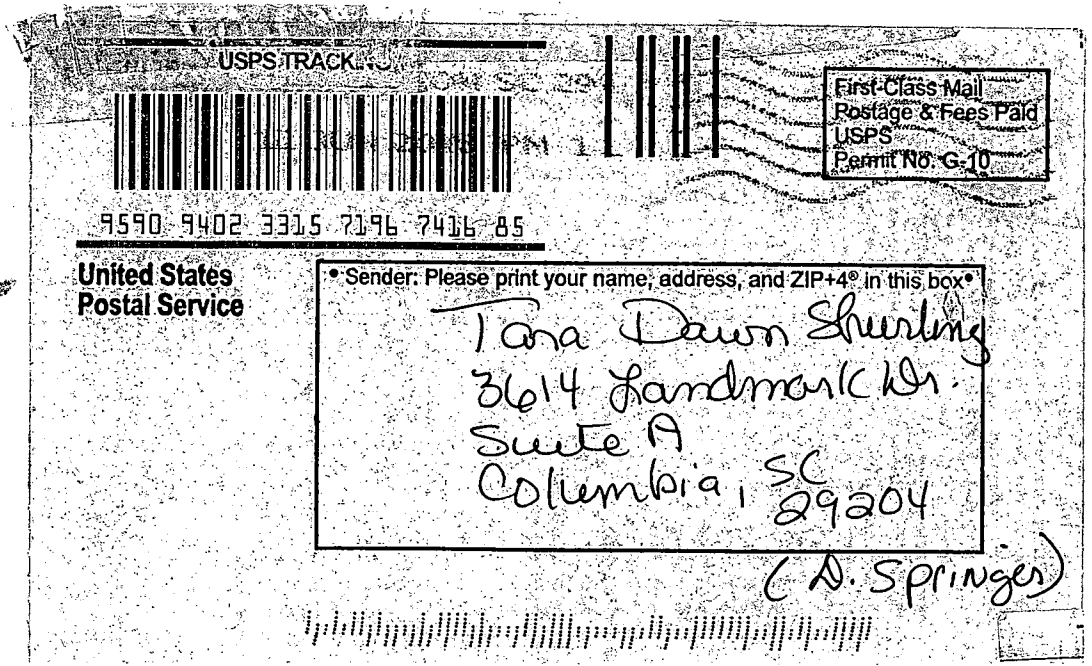 USPS TRACK
First-Class Mail
Postage & Fees Paid
USPS
Permit No. G-10
9590 9402 3315 7196 7416 85
United States
Postal Service
• Sender: Please print your name, address, and ZIP+4® in this box•
Tara Dawn Shurling
3614 Landmark Dr.
Suite A
Columbia, SC
29204
(D. Springer)